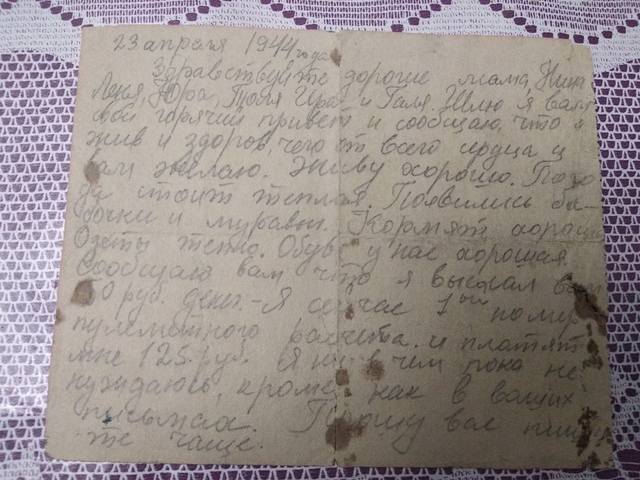 23 апреля 1944 года
Здравствуйте дорогие мама, Нина
Лёня, Юра, Толя Ира и Галя. Шлю я вам
свой горячий привет и сообщаю, что я
жив и здоров чего от всего сердца и
вам желаю. Живу хорошо. Пого-
да стоит теплая. Появились ба-
бочки и муравьи. Кормят хорошо
Одеты тепло. Обувь у нас хорошая.
Сообщаю вам что я выслал вам
0 руб. денег. - Я сейчас 1ый номер
пулеметного расчета. и платят
мне 125 руб. Я ни в чем пока не
нуждаюсь, кроме как в ваших
письмах. Прошу вас пиши
те чаще.